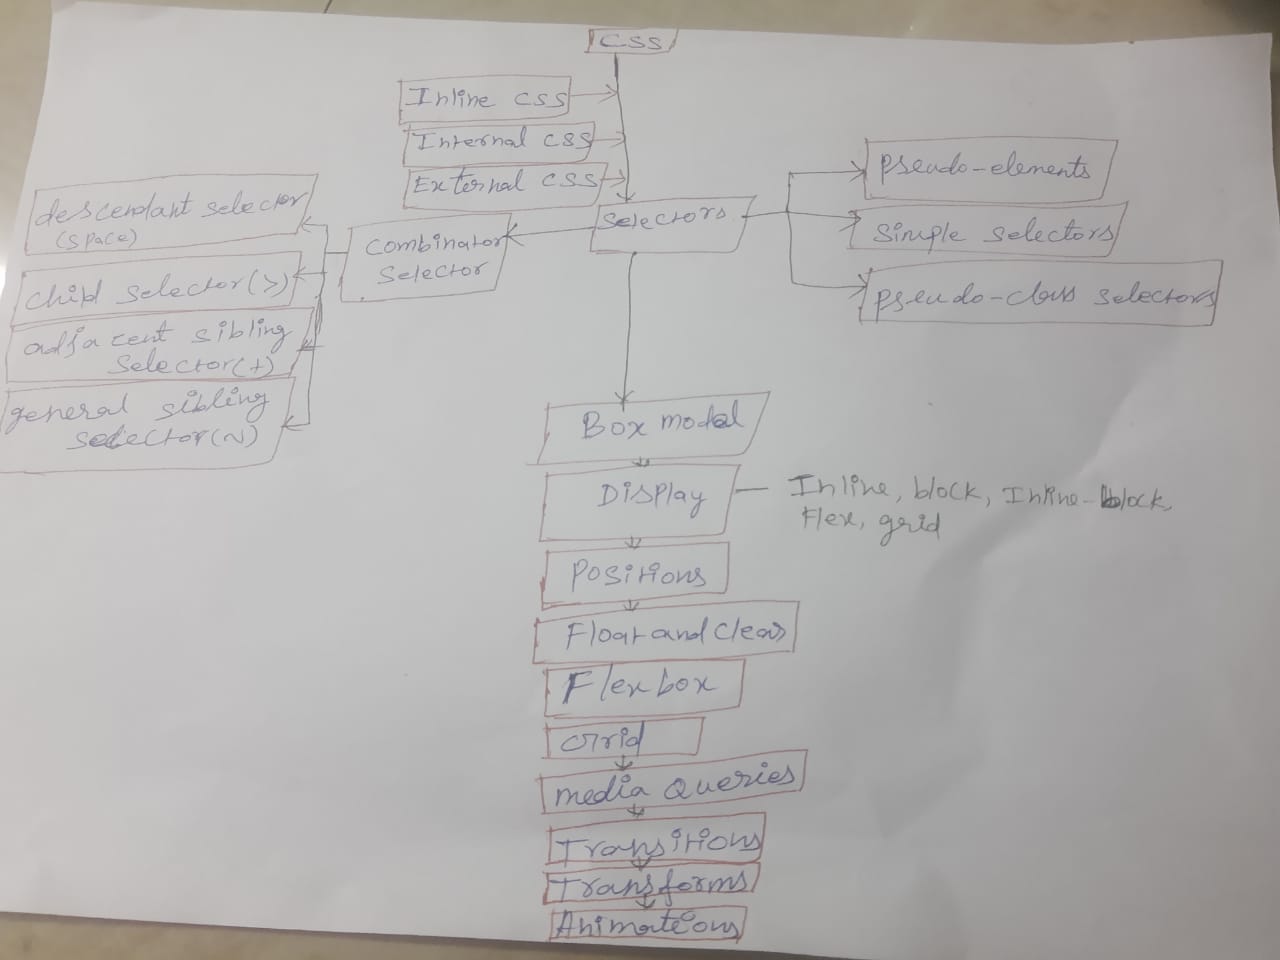 CSS
Inline css
Internal css
External css
Selectors
pseudo-elements
Simple selectors
pseudo-class selectors
Combinator
Selector
descendant selector
(space)
child selector(>)
adjacent sibling
Selector(+)
general sibling
selector(~)
Box modal
Display
Inline, block, Inline-block,
Flex, grid
Positions
Float and Clear
Flexbox
Grid
media Queries
Transitions
Transforms
Animations